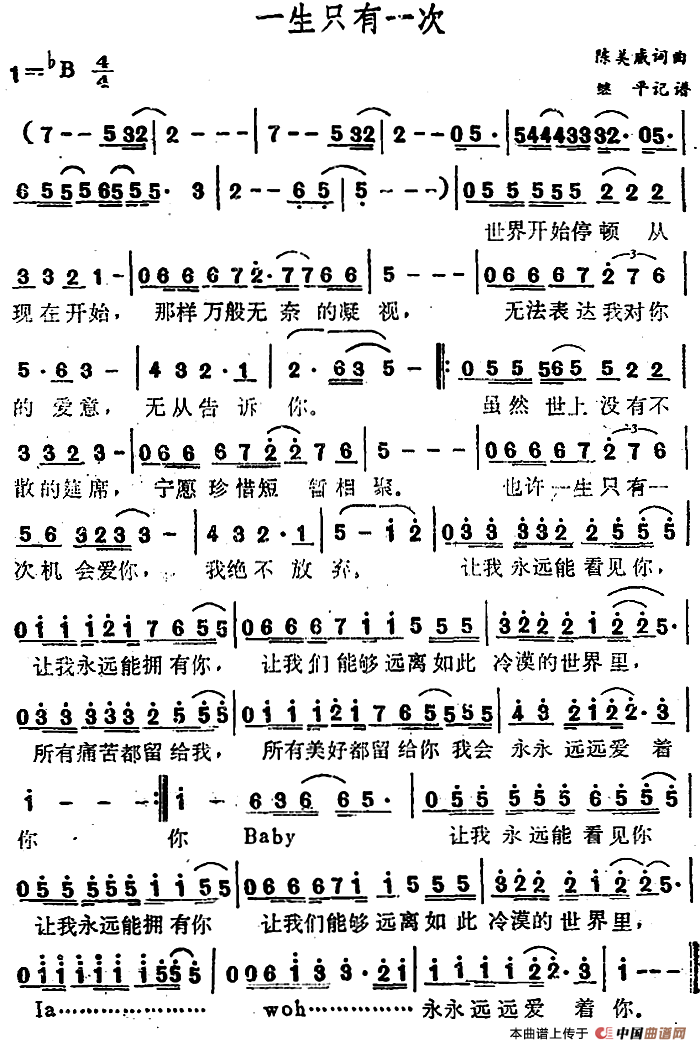 一生只有一次
1=♭B 4/4
陈美威词曲
继 平记谱
(7 - - 532 | 2 - - - | 7 - - 532 | 2 - - 05· | 54443332· 05· |
6555655· 3 | 2 - - 65 | 5 - - -) | 055 555 222 |
世界开始停顿 从
3321 - | 066 672·7766 | 5 - - - | 066 667 276 |
现在开始, 那样万般无奈的凝视, 无法表达我对你
5·63 - | 432·1 | 2·635 - |: 055 565 522 |
的爱意, 无从告诉你。 虽然世上没有不
3323 - | 066 6722 76 | 5 - - - | 066 667 276 |
散的筵席, 宁愿珍惜短 暂相聚。 也许一生只有一
56 3233 - | 432·1 | 5 - 12 | 033 332 2555 |
次机会爱你, 我绝不放弃。 让我永远能看见你,
011 121 7655 | 066 671 1555 | 3222 1225· |
让我永远能拥有你, 让我们能够远离如此 冷漠的世界里,
033 333 2555 | 011 121 765555 | 43 2122·3 |
所有痛苦都留给我, 所有美好都留给你我会 永永远远爱着
1 - - - :| 1 - 636 65· | 055 555 6555 |
你 你 Baby 让我永远能看见你
055 555 1155 | 066 671 1555 | 3222 1225· |
让我永远能拥有你 让我们能够远离如此 冷漠的世界里,
011 111 11555 | 00613 3·21 | 1111 122·3 | 1 - - - ‖
Ia………………… woh……………… 永永远远爱着你。
本曲谱上传于 中国曲谱网